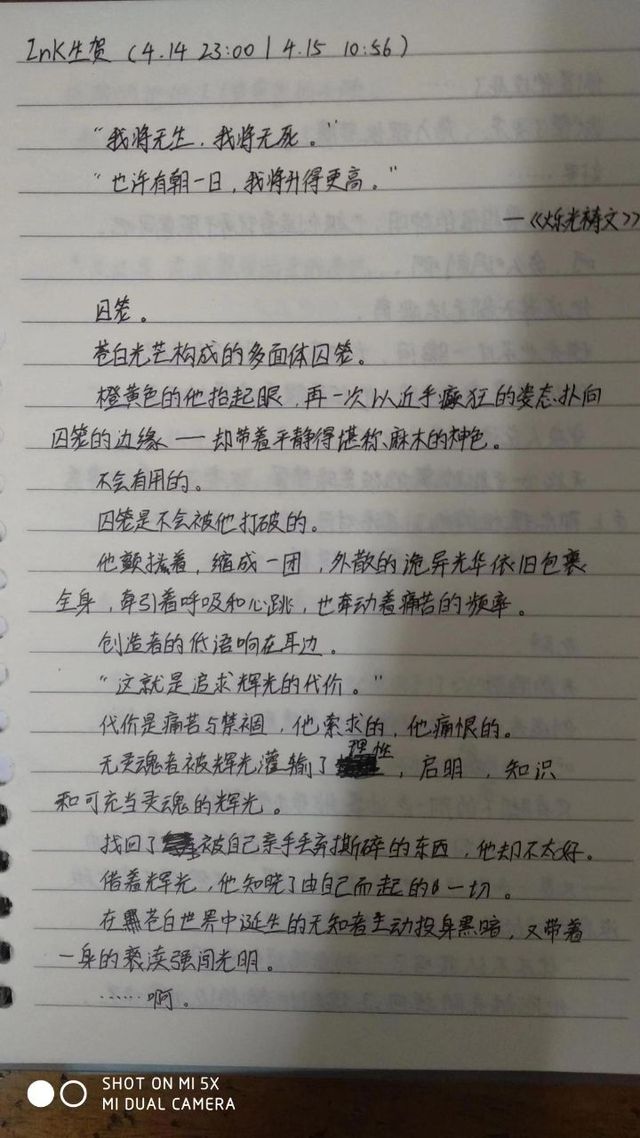 InK生贺 (4.14 23:00 | 4.15 10:56)
“我将无生，我将无死。”
“也许有朝一日，我将升得更高。”
—《烁光祷文》
囚笼。
苍白光芒构成的多面体囚笼。
橙黄色的他抬起眼，再一次以近乎癫狂的姿态扑向
囚笼的边缘——却带着平静得堪称麻木的神色。
不会有用的。
囚笼是不会被他打破的。
他颤抖着，缩成一团，外散的诡异光华依旧包裹
全身，牵引着呼吸和心跳，也牵动着痛苦的频率。
创造者的低语响在耳边。
“这就是追求辉光的代价。”
代价是痛苦与禁锢，他索求的，他痛恨的。
无灵魂者被辉光灌输了理性，启明，知识
和可充当灵魂的辉光。
找回了被自己亲手丢弃撕碎的东西，他却不太好。
借着辉光，他知晓了由自己而起的一切。
在苍白世界中诞生的无知者主动投身黑暗，又带着
一身的亵渎强闯光明。
……啊。
SHOT ON MI 5X
MI DUAL CAMERA